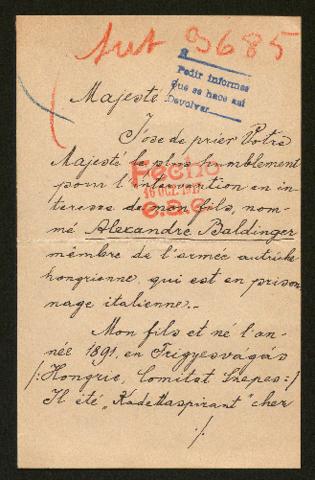 Aut 9685
Pedir informes
que se hace así
Devolver
Majesté!
J'ose de prier Votre
Majesté le plus humblement
pour l'intervention en in-
teresse de mon fils, nom-
mé Alexandre Baldinger
membre de l'armée autrichi
hongrienne, qui est en prison
nage italienne.-
Fecho
16 OCT. 1917
Mon fils et né l'an-
née 1891, en Frigyesvágás
/:Hongrie, Comitat Szepes:/
Il été „Kadettaspirant" cher
./.